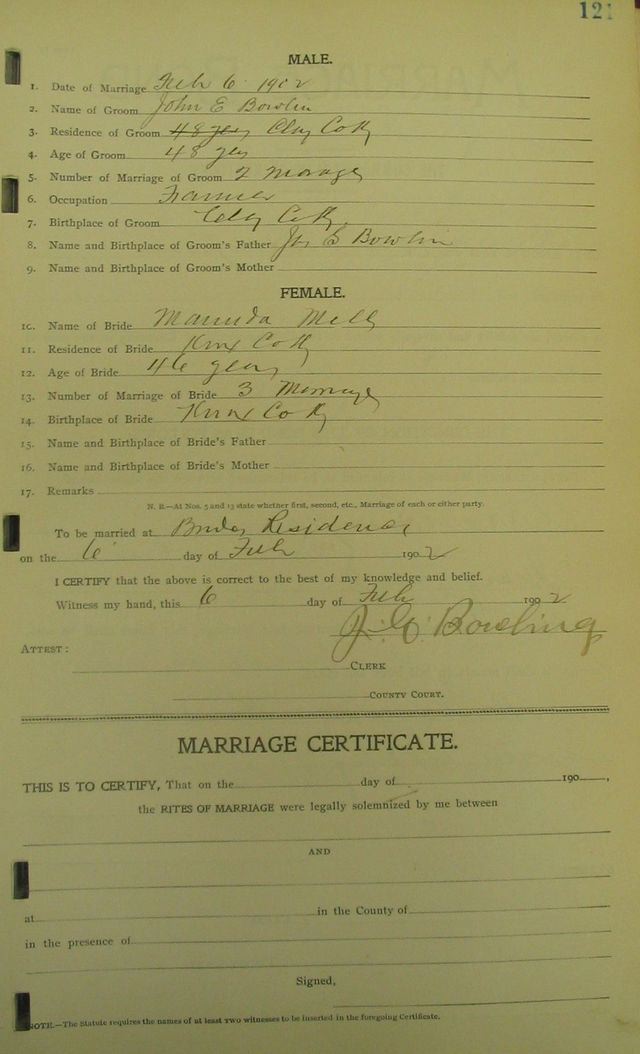 121
MALE.
1. Date of Marriage Feb 6 1902
2. Name of Groom John E Bowlin
3. Residence of Groom 48 years Clay Co Ky
4. Age of Groom 48 yers
5. Number of Marriage of Groom 2
6. Occupation Farmer
7. Birthplace of Groom Clay Co Ky
8. Name and Birthplace of Groom's Father Bowlin
9. Name and Birthplace of Groom's Mother
FEMALE.
10. Name of Bride
11. Residence of Bride Knox Co Ky
12. Age of Bride 46 years
13. Number of Marriage of Bride 3
14. Birthplace of Bride Knox Co Ky
15. Name and Birthplace of Bride's Father
16. Name and Birthplace of Bride's Mother
17. Remarks
N. B.—At Nos. 5 and 13 state whether first, second, etc., Marriage of each or either party.
To be married at Brides Residence
on the 6 day of Feb 1902
I CERTIFY that the above is correct to the best of my knowledge and belief.
Witness my hand, this 6 day of Feb 1902
J. E. Bowling
ATTEST:
CLERK
COUNTY COURT.
MARRIAGE CERTIFICATE.
THIS IS TO CERTIFY, That on the day of 190 ,
the RITES OF MARRIAGE were legally solemnized by me between
AND
at in the County of
in the presence of
Signed,
NOTE.—The Statute requires the names of at least two witnesses to be inserted in the foregoing Certificate.